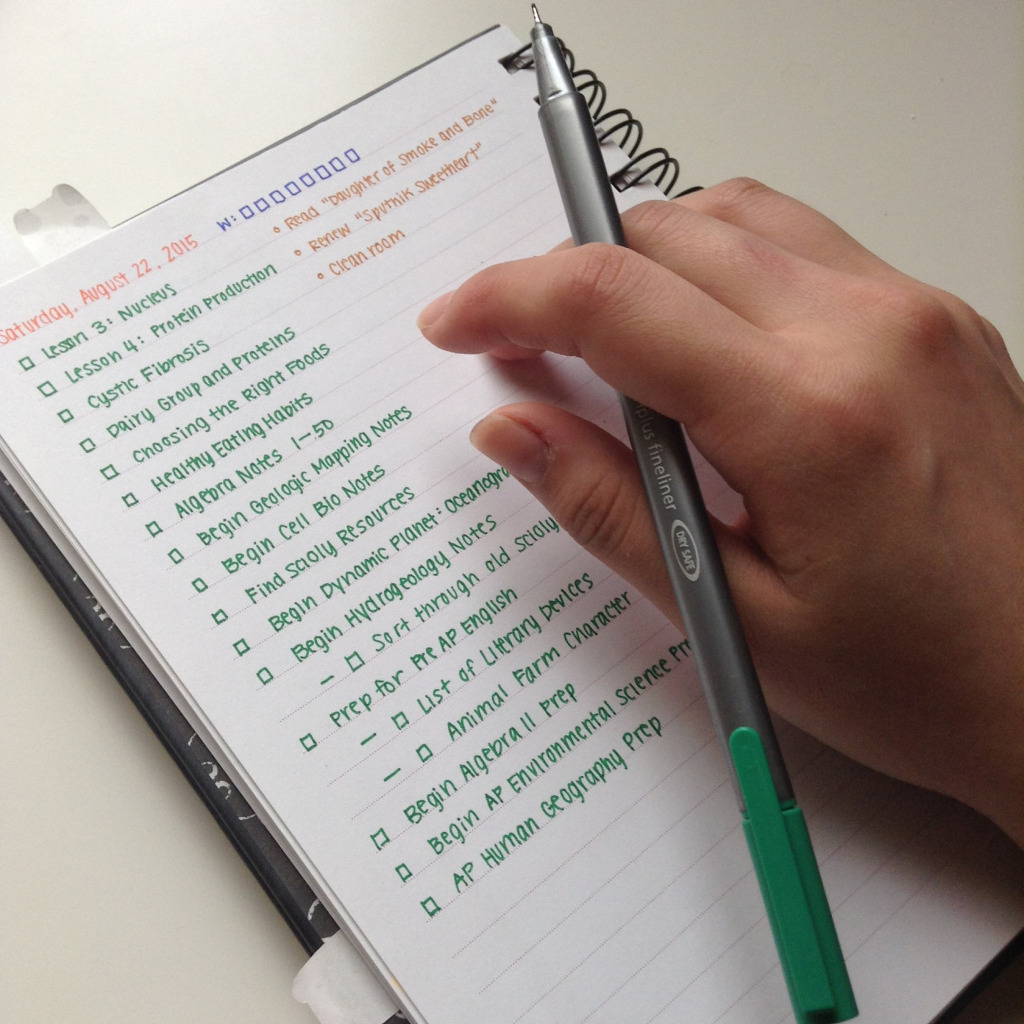 Saturday, August 22, 2015
W: □□□□□□□□
• Read "Daughter of Smoke and Bone"
• Renew "Sputnik Sweetheart"
• Clean room
□ Lesson 3: Nucleus
□ Lesson 4: Protein Production
□ Cystic Fibrosis
□ Dairy Group and Proteins
□ Choosing the Right Foods
□ Healthy Eating Habits
□ Algebra Notes 1-50
□ Begin Geologic Mapping Notes
□ Begin Cell Bio Notes
□ Find Scioly Resources
□ Begin Dynamic Planet:
□ Begin Hydrogeology Notes
– □ Sort through old scioly
□ Prep for Pre AP English
– □ List of Literary Devices
– □ Animal Farm Character
□ Begin Algebra II Prep
□ Begin AP Environmental Science
□ AP Human Geography Prep
plus fineliner
DRY SAFE